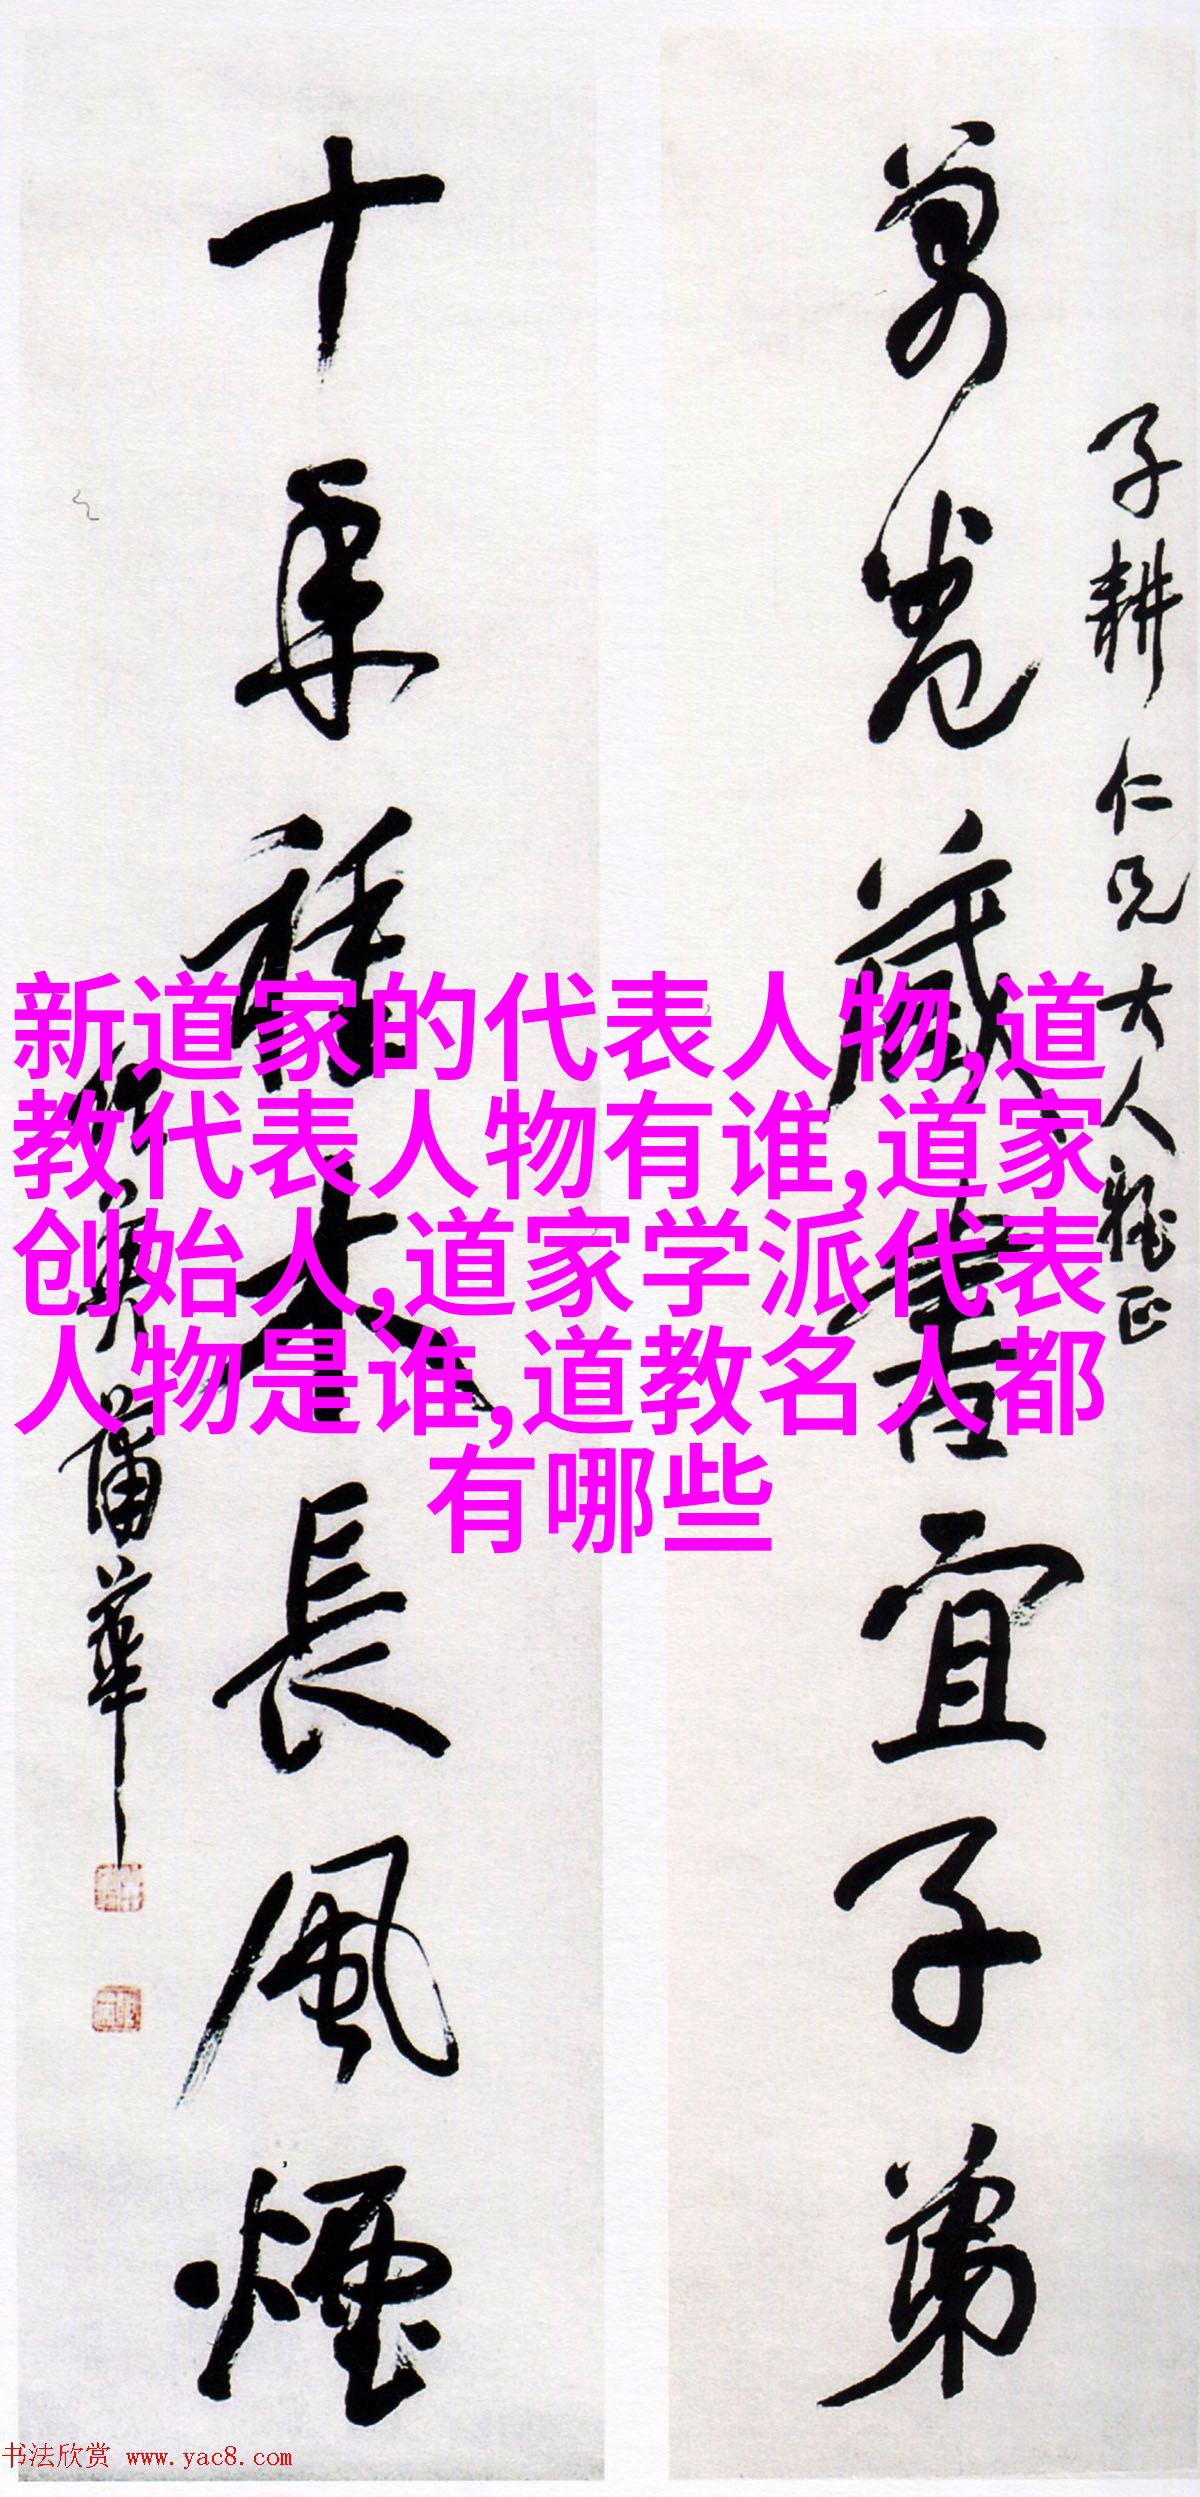 子耕仁兄大人雅正
万卷藏书宜子弟
十年种木长风烟
蒲华
新道家的代表人物,道
教代表人物有谁,道家
创始人,道家学派代表
人物是谁,道教名人都
有哪些
书法欣赏 www.yac8.com